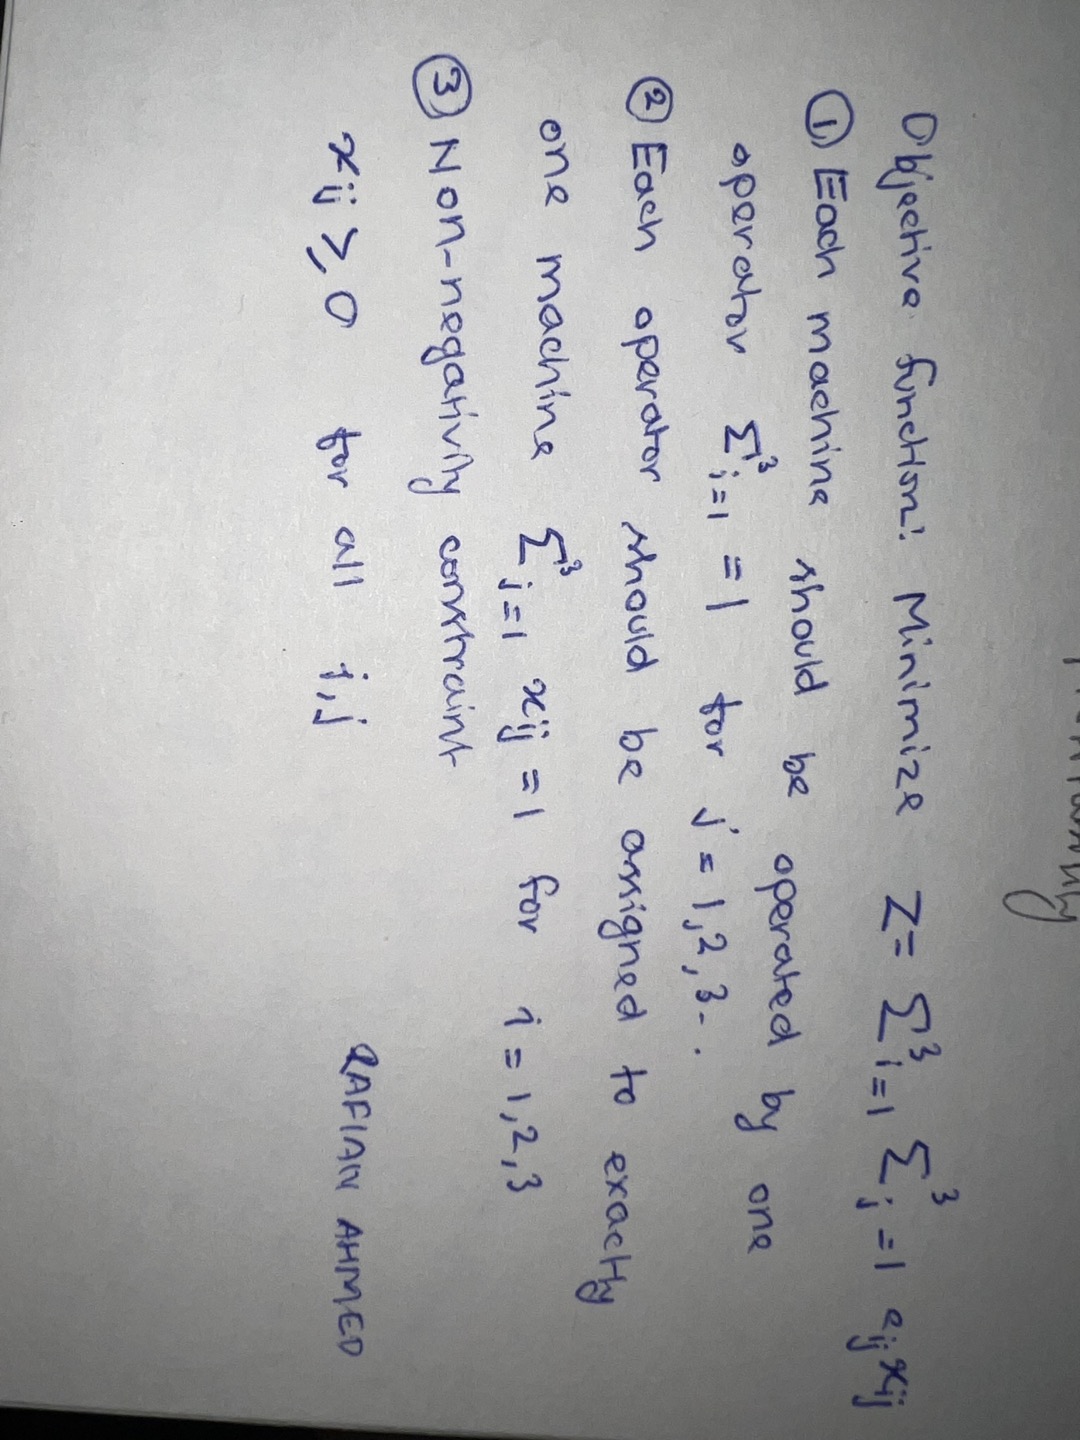 Objective function: Minimize Z = Σ³ᵢ₌₁ Σ³ⱼ₌₁ eᵢⱼ xᵢⱼ
① Each machine should be operated by one
operator Σ³ᵢ₌₁ = 1 for j = 1,2,3.
② Each operator should be assigned to exactly
one machine Σ³ⱼ₌₁ xᵢⱼ = 1 for i = 1,2,3
③ Non-negativity constraint
xᵢⱼ ≥ 0 for all i,j
RAFIAN AHMED